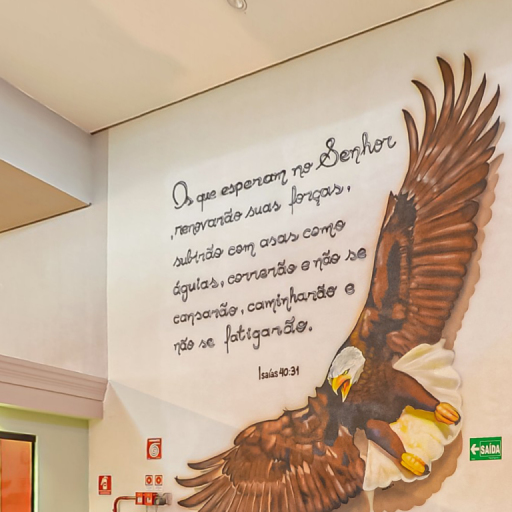 Os que esperam no Senhor
renovarão suas forças,
subirão com asas como
águias, correrão e não se
cansarão, caminharão e
não se fatigarão.
Isaías 40:31
SAÍDA